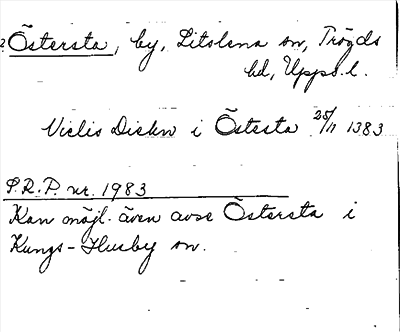 ? Östersta, by, Litslena sn, Trögds
hd, Upps. l.
Vielis Diekn i Östesta 25/11 1383
S.R.P. nr. 1983
Kan möjl. även avse Östersta i
Kungs-Husby sn.